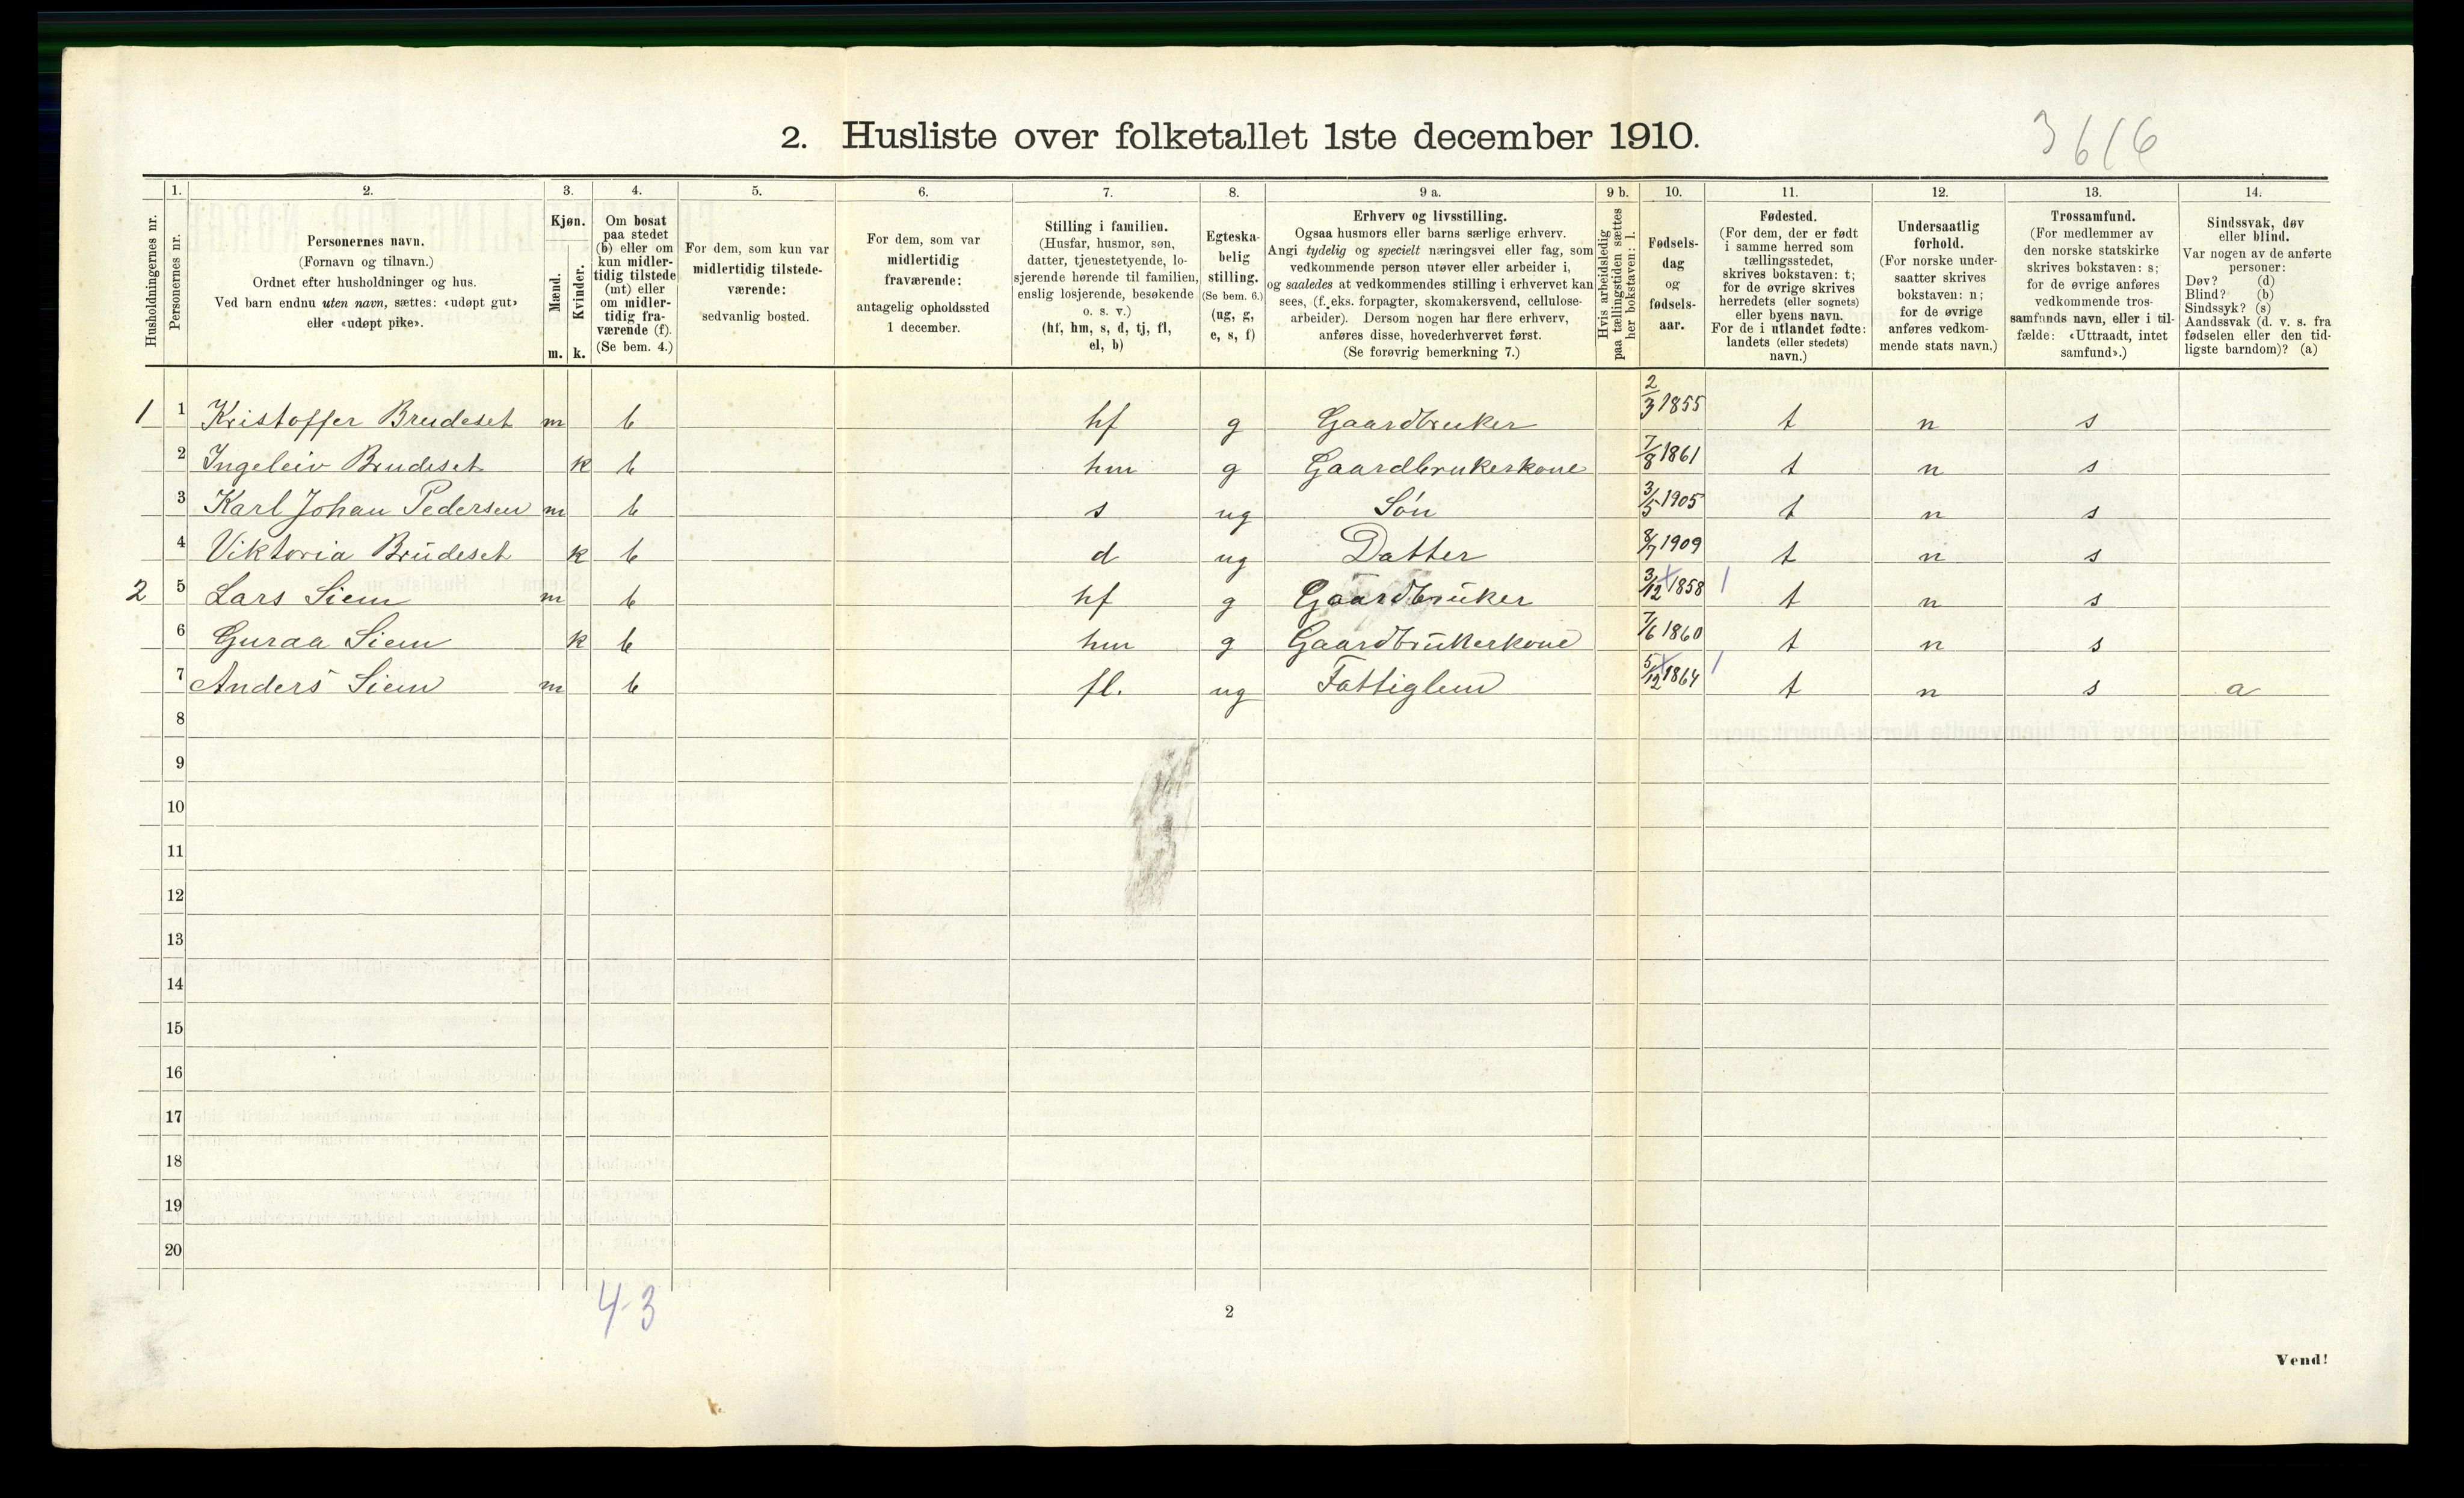 2. Husliste over folketallet 1ste december 1910.
3616
Husholdningernes nr.
1.
Personernes nr.
2.
Personernes navn.
(Fornavn og tilnavn.)
Ordnet efter husholdninger og hus.
Ved barn endnu uten navn, sættes: «udøpt gut»
eller «udøpt pike».
3.
Kjøn.
Mænd.
m.
Kvinder.
k.
4.
Om bosat
paa stedet
(b) eller om
kun midler-
tidig tilstede
(mt) eller
om midler-
tidig fra-
værende (f).
(Se bem. 4.)
5.
For dem, som kun var
midlertidig tilstede-
værende:
sedvanlig bosted.
6.
For dem, som var
midlertidig
fraværende:
antagelig opholdssted
1 december.
7.
Stilling i familien.
(Husfar, husmor, søn,
datter, tjenestetyende, lo-
sjerende hørende til familien,
enslig losjerende, besøkende
o. s. v.)
(hf, hm, s, d, tj, fl,
el, b)
8.
Egteska-
belig
stilling.
(Se bem. 6.)
(ug, g,
e, s, f)
9 a.
Erhverv og livsstilling.
Ogsaa husmors eller barns særlige erhverv.
Angi tydelig og specielt næringsvei eller fag, som
vedkommende person utøver eller arbeider i,
og saaledes at vedkommendes stilling i erhvervet kan
sees, (f. eks. forpagter, skomakersvend, cellulose-
arbeider). Dersom nogen har flere erhverv,
anføres disse, hovederhvervet først.
(Se forøvrig bemerkning 7.)
9 b.
Hvis arbeidsledig
paa tællingstiden sættes
her bokstaven: l.
10.
Fødsels-
dag
og
fødsels-
aar.
11.
Fødested.
(For dem, der er født
i samme herred som
tællingsstedet,
skrives bokstaven: t;
for de øvrige skrives
herredets (eller sognets)
eller byens navn.
For de i utlandet fødte:
landets (eller stedets)
navn.)
12.
Undersaatlig
forhold.
(For norske under-
saatter skrives
bokstaven: n;
for de øvrige
anføres vedkom-
mende stats navn.)
13.
Trossamfund.
(For medlemmer av
den norske statskirke
skrives bokstaven: s;
for de øvrige anføres
vedkommende tros-
samfunds navn, eller i til-
fælde: «Uttraadt, intet
samfund».)
14.
Sindssvak, døv
eller blind.
Var nogen av de anførte
personer:
Døv? (d)
Blind? (b)
Sindssyk? (s)
Aandssvak (d. v. s. fra
fødselen eller den tid-
ligste barndom)? (a)
1 1 Kristoffer Brudeset m b hf g Gaardbruker 2/3 1855 t n s
2 Ingeleiv Brudeset k b hm g Gaardbrukerkone 7/8 1861 t n s
3 Karl Johan Pedersen m b s ug Søn 3/5 1905 t n s
4 Viktoria Brudeset k b d ug Datter 8/7 1909 t n s
2 5 Lars Siem m b hf g Gaardbruker 3/12 1858 t n s
6 Guraa Siem k b hm g Gaardbrukerkone 7/6 1860 t n s
7 Anders Siem m b fl. ug Fattiglem 5/12 1864 t n s a
8
9
10
11
12
13
14
15
16
17
18
19
20
4-3
2
Vend!